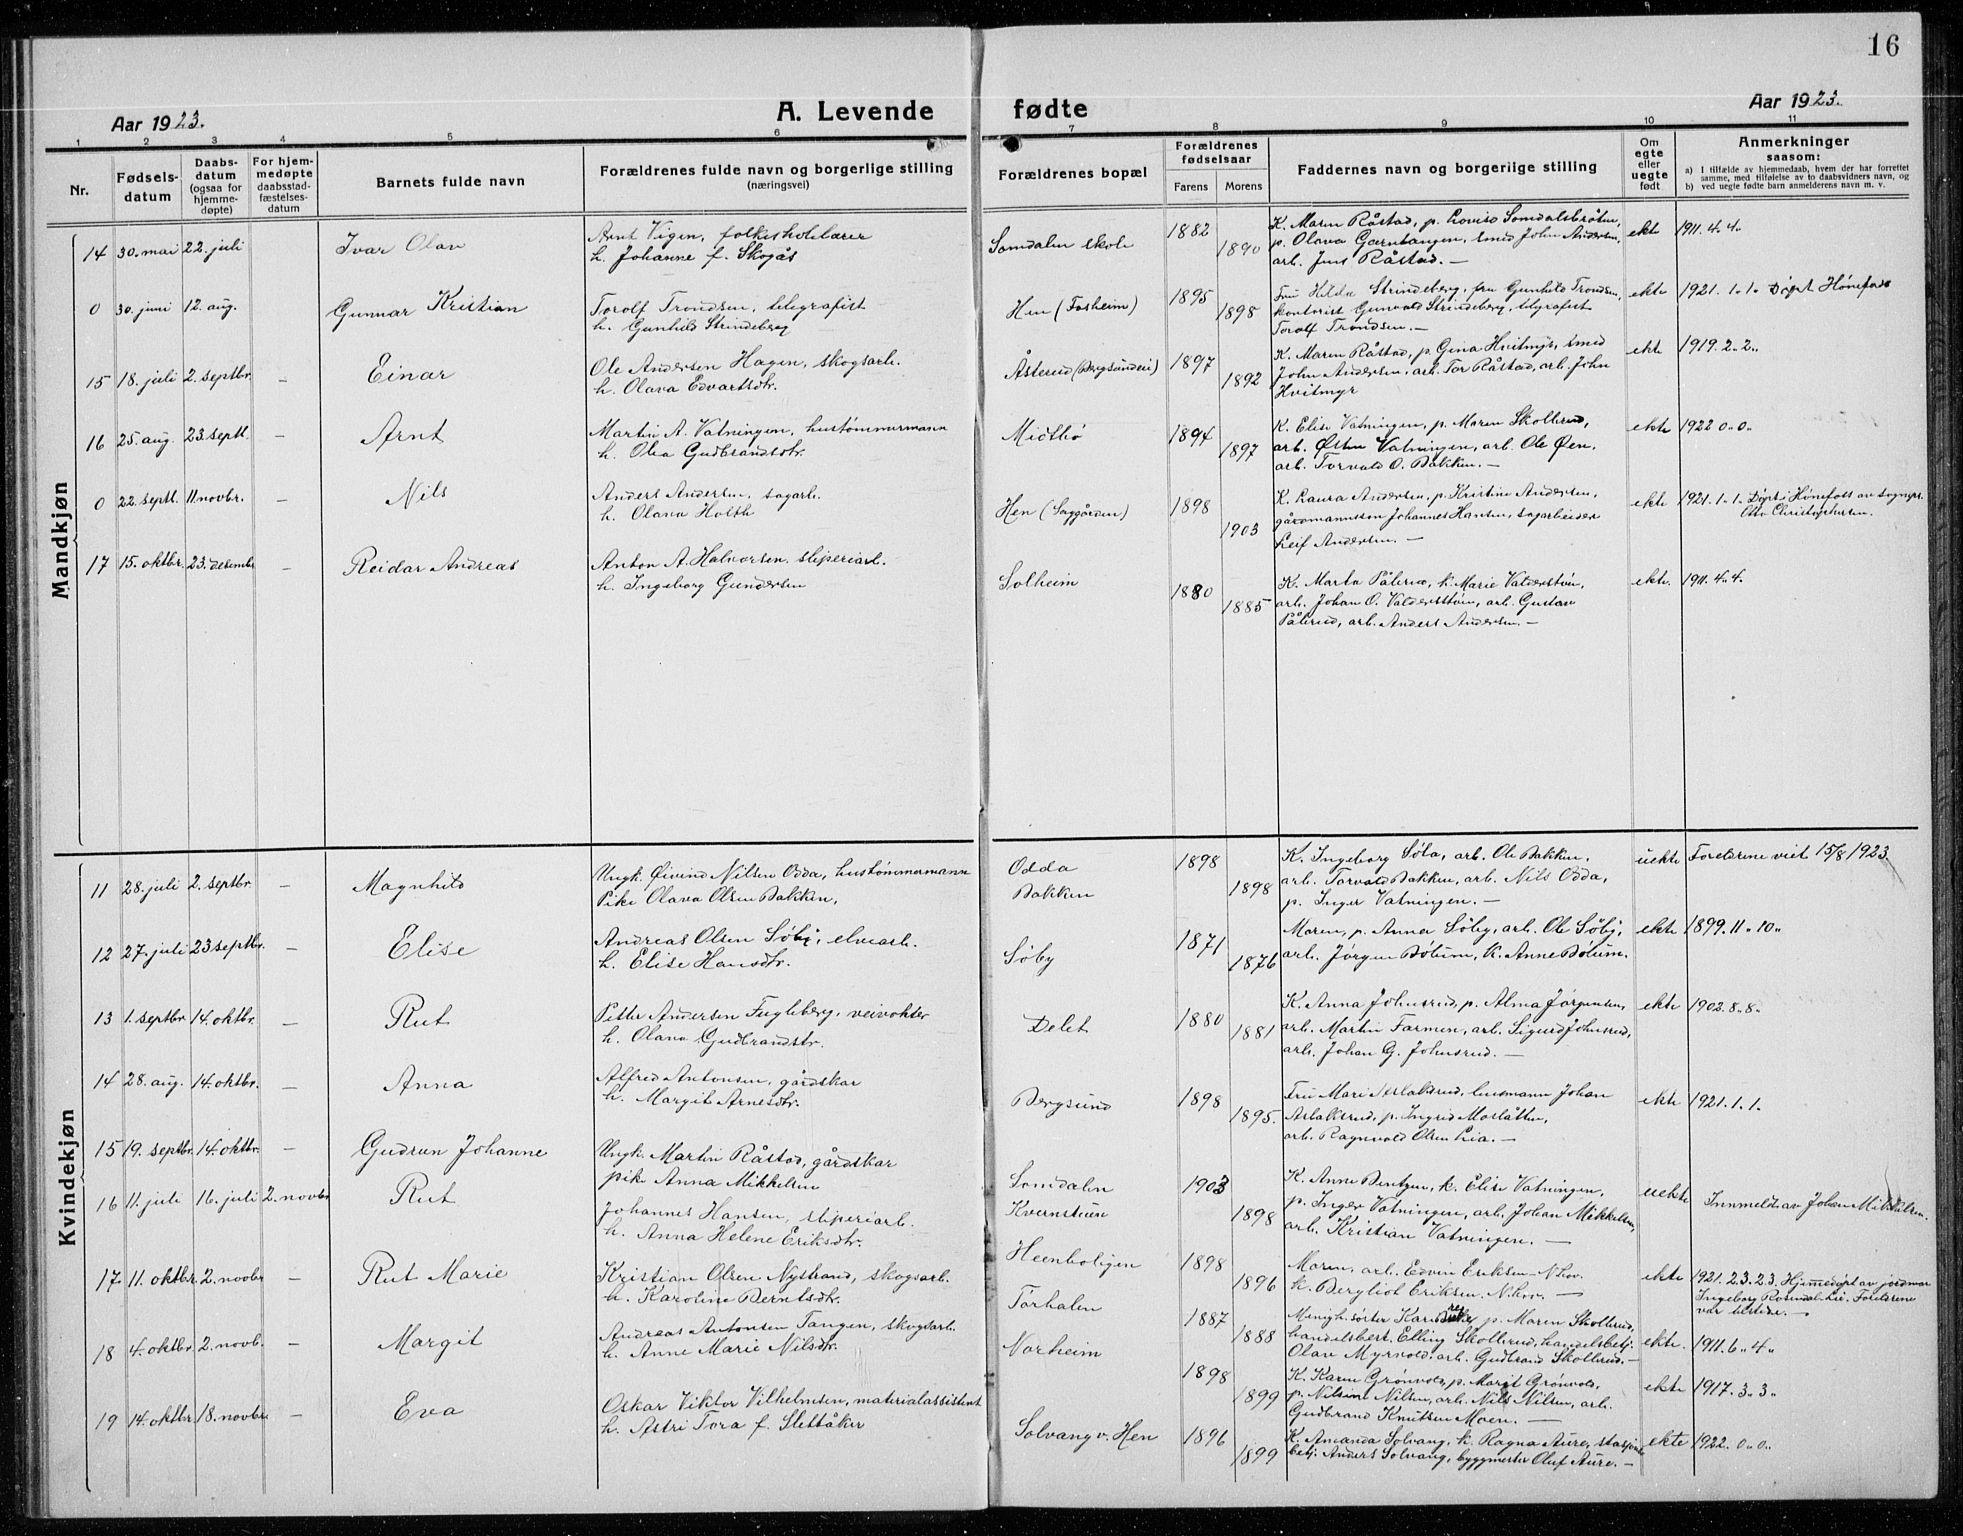 16
Aar 1923.
A. Levende
fødte
Aar 1923.
1 2 3 4 5 6 7 8 9 10 11
Nr.
Fødsels-
datum
Daabs-
datum
(ogsaa for
hjemme-
døpte)
For hjem-
medøpte
daabsstad-
fæstelses-
datum
Barnets fulde navn
Forældrenes fulde navn og borgerlige stilling
(næringsvei)
Forældrenes bopæl
Forældrenes
fødselsaar
Farens
Morens
Faddernes navn og borgerlige stilling
Om
egte
eller
uegte
født
Anmerkninger
saasom:
a) I tilfælde av hjemmedaab, hvem der har forrettet
samme, med tilføielse av to daabsvidners navn, og
b) ved uegte fødte barn anmelderens navn m. v.
Mandkjøn
14 30. mai 22. juli Ivar Olav
Arnt Vigen, folkeskolelærer
h. Johanne f. Skogås
Somdalen skole
1882
1890
K. Maren Råstad, p. Lovise Somdalsbråten,
p. Olava Garntangen, smed John Andersen,
arb. Jens Råstad. —
ekte
1911. 4. 4.
0 30. juni 12. aug. Gunnar Kristian
Torolf Trondsen, telegrafist
h. Gunhild Strindeberg
Hen (Fosheim)
1895
1898
Fru Hilda Strindeberg, fru Gunhild Trondsen,
kontorist Gunvald Strindeberg, telegrafist
Torolf Trondsen. —
ekte
1921. 1. 1. Døpt Hønefoss
15 18. juli 2. septbr. — Einar
Ole Andersen Hagen, skogsarb.
h. Olava Edvartsdtr.
Åsterud (Bergsundeie)
1897
1892
K. Maren Råstad, p. Gina Hvitmyr, smed
John Andersen, arb. Tor Råstad, arb. John
Hvitmyr
ekte
1919. 2. 2.
16 25. aug. 23. septb. — Arnt
Martin A. Vatningen, hustømmermann
h. Olea Gudbrandsdtr.
Midtbø
1894
1897
K. Elise Vatningen, p. Maren Skollerud,
arb. Østen Vatningen, arb. Ole Øen,
arb. Torvald O. Bakken. —
ekte
1922 0. 0.
0 22. septb. 11. novbr. — Nils
Anders Andersen, sagarb.
h. Olava Holth
Hen (Saggården)
1898
1903
K. Laura Andersen, p. Kristine Andersen,
gårdmannssøn Johannes Hansen, sagarbeider
Leif Andersen. —
ekte
1921. 1. 1. Døpt i Hønefoss av sogнpr.
Otto Christophersen.
17 15. oktbr. 23. desembr. — Reidar Andreas
Anton A. Halvorsen, sliperiarb.
h. Ingeborg Gundersen
Solheim
1880
1885
K. Marta Pålerud, k. Marie Valderstøen,
arb. Johan O. Valderstøen, arb. Gustav
Pålerud, arb. Anders Andersen. —
ekte.
1911. 4. 4.
Kvindekjøn
11 28. juli 2. septbr. — Magnhild
Ungk. Øivind Nilsen Odda, hustømmermann
Pike Olava Olsen Bakken,
Odda
Bakken
1898
1898
K. Ingeborg Søla, arb. Ole Bakken,
arb. Torvald Bakken, arb. Nils Odda,
p. Inger Vatningen. —
uekte
Foreldrene viet 15/8 1923
12 27. juli 23 septbr. — Elise
Andreas Olsen Søby, elvearb.
h. Elise Hansdtr.
Søby
1871
1876
Moren, p. Anna Søby, arb. Ole Søby,
arb. Jørgen Bølum, k. Anne Bølum.
ekte
1899. 11. 10.
13 1. septbr. 14. oktbr. — Rut
Petter Andersen Fugleberg, veivokter
h. Olava Gudbrandstr.
Delet
1880
1881
K. Anna Johnsrud, p. Alma Jørgensen,
arb. Martin Farmen, arb. Sigurd Johnsrud,
arb. Johan G. Johnsrud. —
ekte
1902. 8. 8.
14 28. aug. 14. oktbr. — Anna
Alfred Antonsen, gårdskar
h. Margit Arnesdtr.
Bergsund
1898
1895.
Fru Mari Aslaksrud, lensmann Johan
Aslaksrud, p. Ingrid Morlåtten,
arb. Ragnvald Olsen Lia. —
ekte
1921. 1. 1.
15 19. septbr. 14. oktbr. — Gudrun Johanne
Ungk. Martin Råstad, gårdskar
pike Anna Mikkelsen
Somdalen
Kvernstuen
1903
1898
K. Anne Bentzen, k. Elise Vatningen,
p. Inger Vatningen, arb. Johan Mikkelsen,
arb. Kristian Vatningen. —
uekte
Innmeldt av Johan Mikkelsen.
16 11. juli 16. juli 2. novbr Rut
Johannes Hansen, sliperiarb.
h. Anna Helene Eriksdtr.
Heenboligen
1898
1896
Moren, arb. Edvin Eriksen N.hov.
k. Bergliot Eriksen N.hov. —
ekte
1921. 2 3. 2 3. Hjemmedøpt av jordmor
Ingeborg Rosendal Lie. Foreldrene
var testene. —
17. 11. oktbr. 2. novbr — Rut Marie
Kristian Olsen Nystrand, skogsarb.
h. Karoline Berntsdtr.
Torhalen
1887
1888
Menigh. søster Karen, p. Maren Skollerud,
handelsbest. Elling Skollerud, handelsbetj.
Olav Myrvold, arb. Gudbrand Skollerud. —
ekte.
1911. 6. 4.
18 4. oktbr. 2. novb. — Margit
Andreas Antonsen Tangen, skogsarb.
h. Anne Marie Nilsdtr.
Norheim
1898
1899
K. Karen Grønvold, p. Margit Grønvold,
p. Nilsine Nilsen, arb. Nils Nilsen, arb.
Gudbrand Knutsen Moen. —
ekte
1917. 3. 3.
19 14. oktbr. 18. novbr — Eva
Oskar Viktor Vilhelmsen, materialassistent
h. Astri Tora f. Slettåker
Solvang v. Hen
1896
1899
K. Amanda Solvang, k. Ragna Aure, stasjons
betj. Anders Solvang, byggmester Oluf Aure. —
ekte
1922. 0. 0.